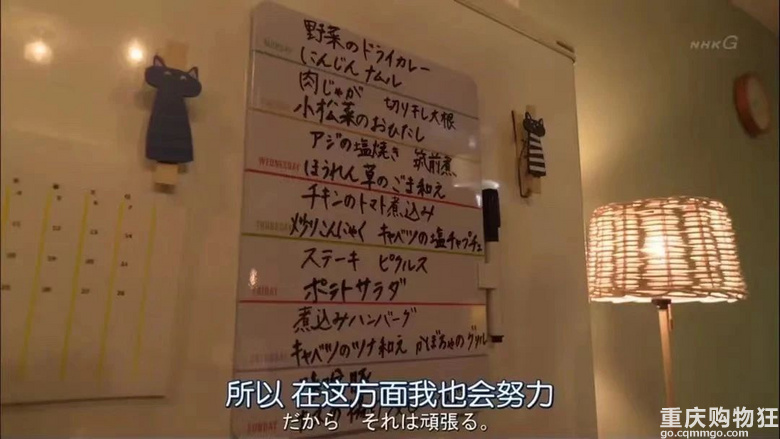 NHK G
野菜のドライカレー
にんじんナムル
肉じゃが 切り干し大根
小松菜のおひたし
アジの塩焼き 筑前煮
WEDNESDAY
ほうれん草のごま和え
チキンのトマト煮込み
THURSDAY
炒りこんにゃく キャベツの塩チャプチェ
ステーキ ピクルス
FRIDAY
ポテトサラダ
煮込みハンバーグ
キャベツのツナ和え かぼちゃのグリル
所以 在这方面我也会努力
だから それは頑張る。
重庆购物狂
go.cqmmgo.com